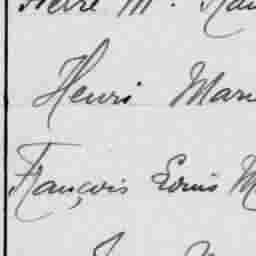 Pierre M.
Henri Mar
François Louis M